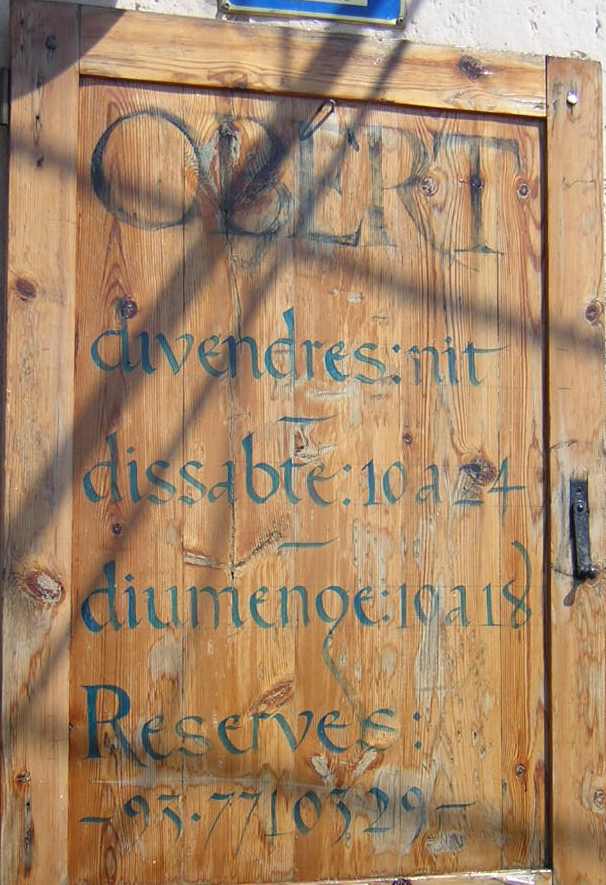 OBERT
divendres: nit
–
dissabte: 10 a 24
–
diumenge: 10 a 18
Reserves:
- 93.7710329 -